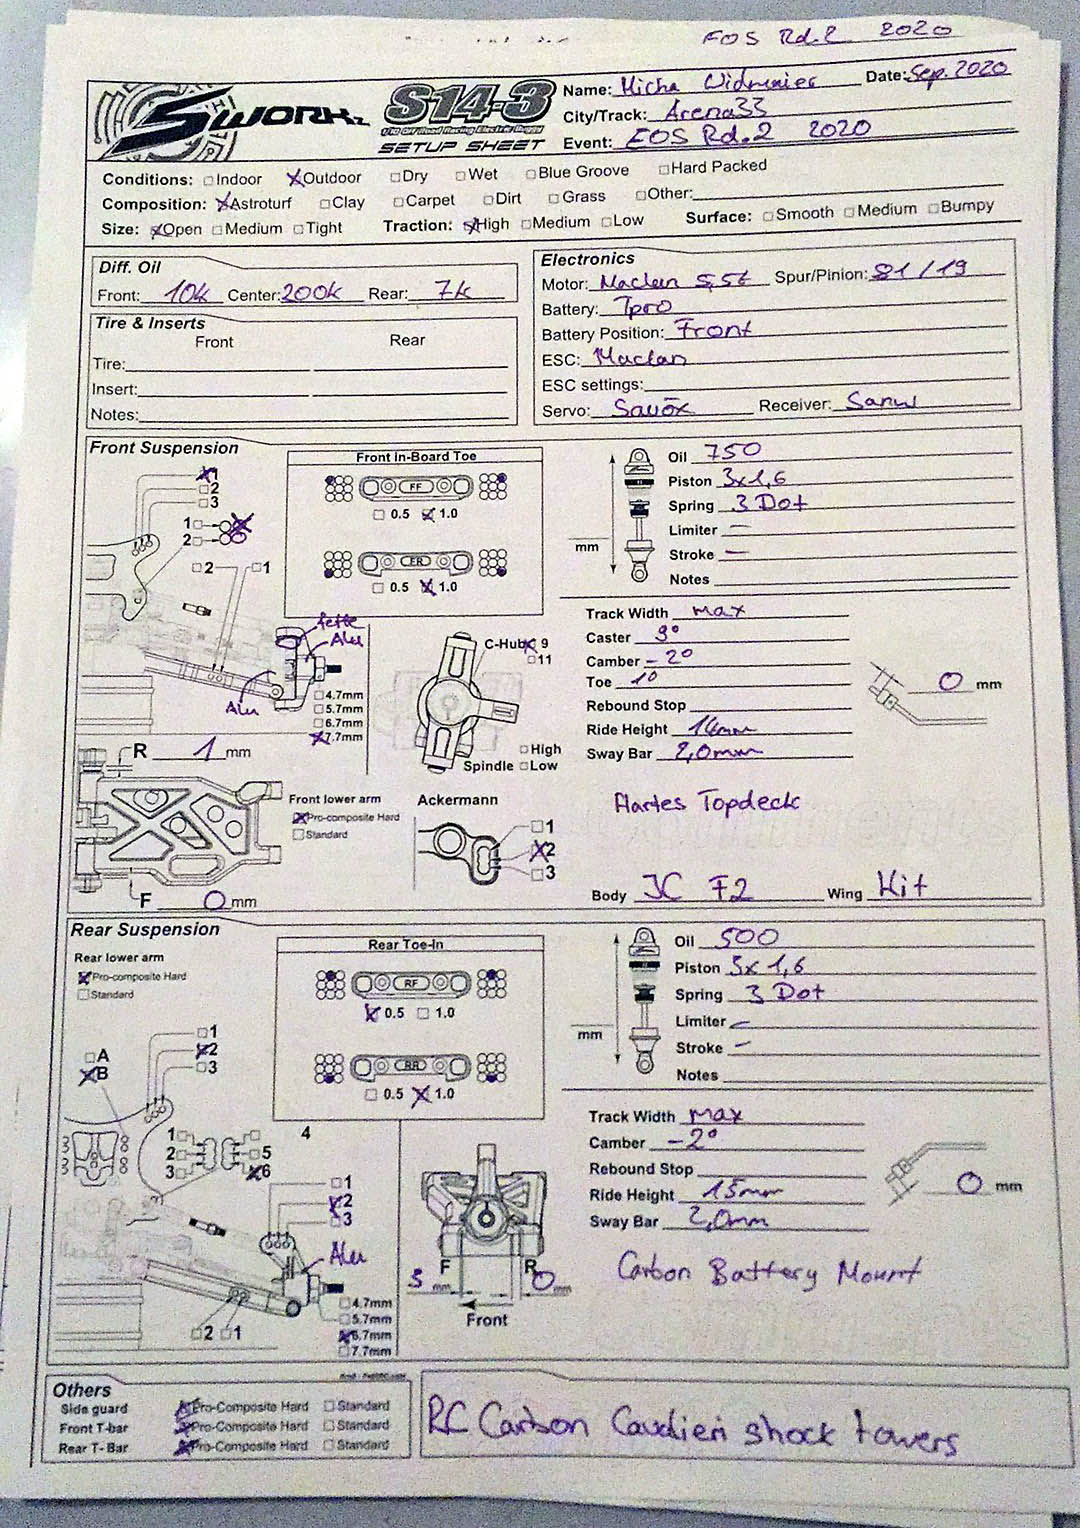 EOS Rd.2 2020
SWORKz S14-3 Name: Micha Widmaier Date: Sep. 2020
1/10 Off Road Racing Electric Buggy City/Track: Arena33
SETUP SHEET Event: EOS Rd.2 2020
Conditions: Indoor Outdoor Dry Wet Blue Groove Hard Packed
Composition: Astroturf Clay Carpet Dirt Grass Other:
Size: Open Medium Tight Traction: High Medium Low Surface: Smooth Medium Bumpy
Diff. Oil
Front: 10k Center: 200k Rear: 7k
Tire & Inserts
Front Rear
Tire:
Insert:
Notes:
Electronics
Motor: Maclan 5,5t Spur/Pinion: 81/19
Battery: Tpro
Battery Position: Front
ESC: Maclan
ESC settings:
Servo: Savöx Receiver: Sanw
Front Suspension
1
2
3
1
2
2 1
Front In-Board Toe
FF
0.5 1.0
FR
0.5 1.0
mm
Oil 750
Piston 3x1,6
Spring 3 Dot
Limiter —
Stroke —
Notes
fette
Alu
Alu
4.7mm
5.7mm
6.7mm
7.7mm
C-Hub 9
11
High
Spindle Low
Track Width max
Caster 9°
Camber -2°
Toe 1°
Rebound Stop
Ride Height 14mm
Sway Bar 2,0mm
0 mm
R 1 mm
F 0 mm
Front lower arm
Pro-composite Hard
Standard
Ackermann
1
2
3
Hartes Topdeck
Body JC F2 Wing Kit
Rear Suspension
Rear lower arm
Pro-composite Hard
Standard
1
2
3
A
B
Rear Toe-In
RF
0.5 1.0
RR
0.5 1.0
mm
Oil 500
Piston 3x1,6
Spring 3 Dot
Limiter —
Stroke —
Notes
1 4
2 5
3 6
1
2
3
Alu
4.7mm
5.7mm
6.7mm
7.7mm
2 1
F R
3 mm 0 mm
Front
Track Width max
Camber -2°
Rebound Stop
Ride Height 15mm
Sway Bar 2,0mm
0 mm
Carbon Battery Mount
Others
Side guard Pro-Composite Hard Standard
Front T-bar Pro-Composite Hard Standard
Rear T-Bar Pro-Composite Hard Standard
RC Carbon Cavalieri shock towers